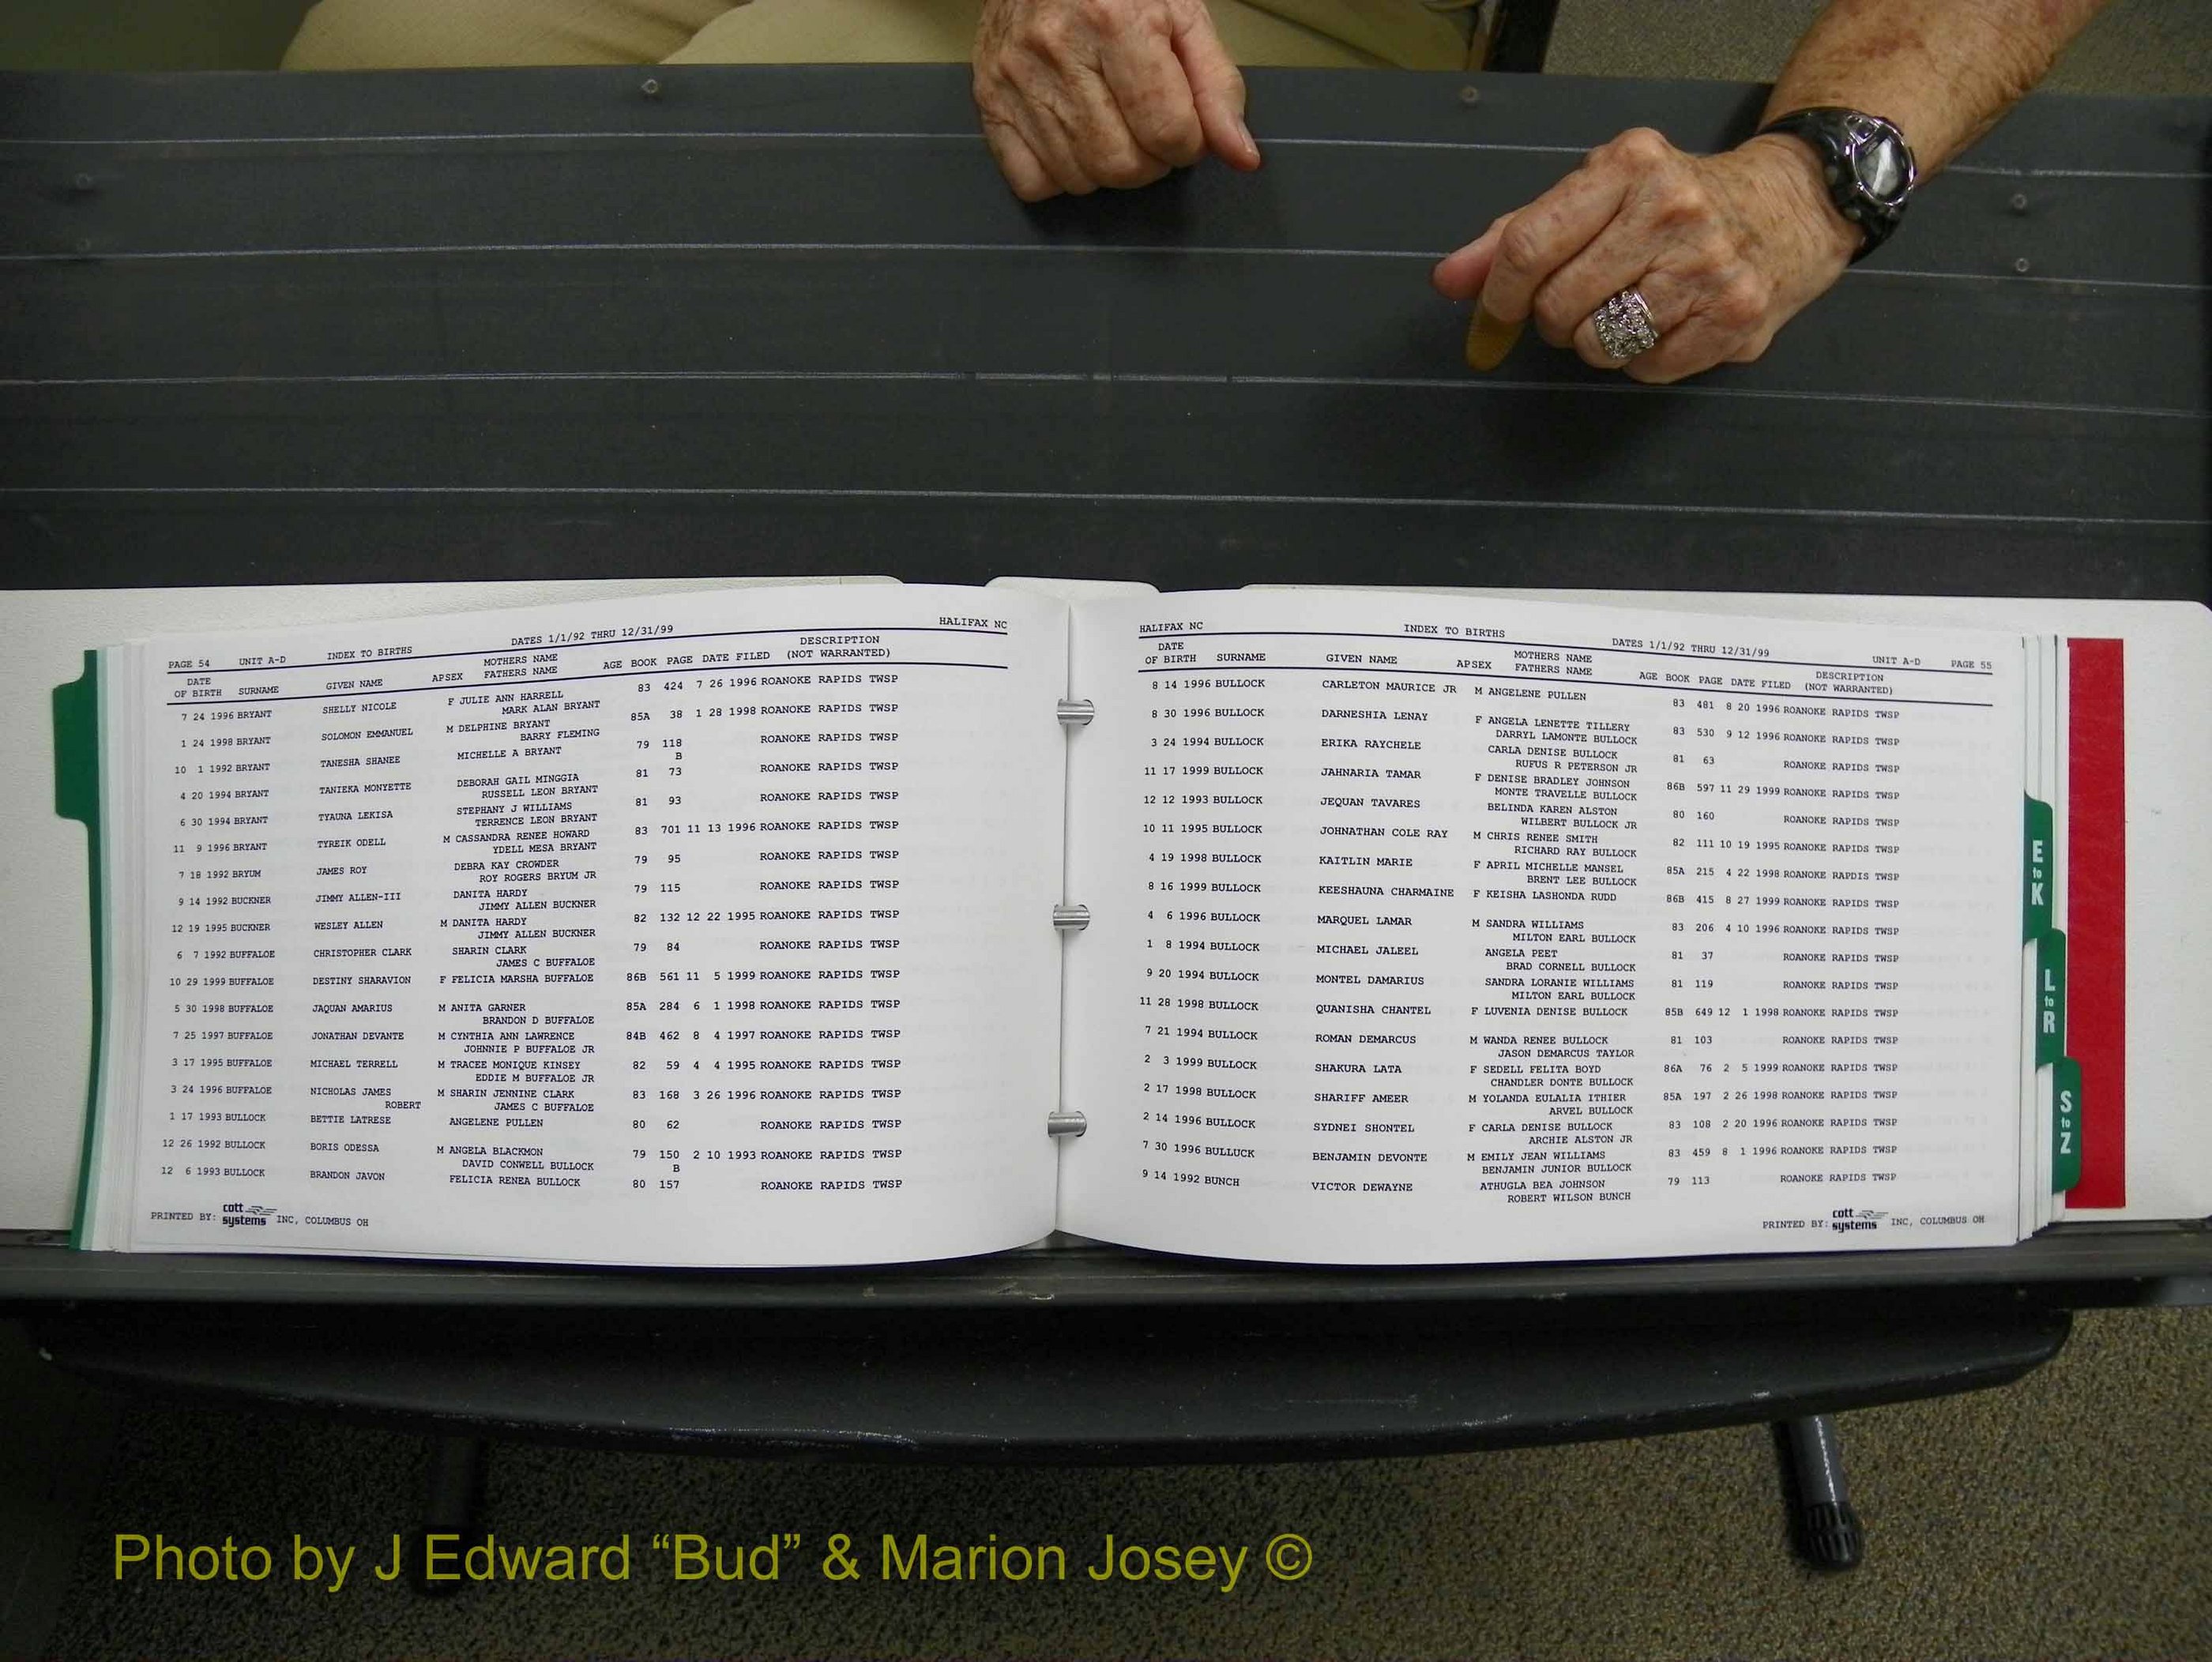 HALIFAX NC
PAGE 54 UNIT A-D INDEX TO BIRTHS DATES 1/1/92 THRU 12/31/99
DATE OF BIRTH SURNAME GIVEN NAME AP SEX MOTHERS NAME FATHERS NAME AGE BOOK PAGE DATE FILED DESCRIPTION (NOT WARRANTED)
7 24 1996 BRYANT SHELLY NICOLE F JULIE ANN HARRELL 83 424 7 26 1996 ROANOKE RAPIDS TWSP
MARK ALAN BRYANT
1 24 1998 BRYANT SOLOMON EMMANUEL M DELPHINE BRYANT 85A 38 1 28 1998 ROANOKE RAPIDS TWSP
BARRY FLEMING
10 1 1992 BRYANT TANESHA SHANEE MICHELLE A BRYANT 79 118 ROANOKE RAPIDS TWSP
B
4 20 1994 BRYANT TANIEKA MONYETTE DEBORAH GAIL MINGGIA 81 73 ROANOKE RAPIDS TWSP
RUSSELL LEON BRYANT
6 30 1994 BRYANT TYAUNA LEKISA STEPHANY J WILLIAMS 81 93 ROANOKE RAPIDS TWSP
TERRENCE LEON BRYANT
11 9 1996 BRYANT TYREIK ODELL M CASSANDRA RENEE HOWARD 83 701 11 13 1996 ROANOKE RAPIDS TWSP
YDELL MESA BRYANT
7 18 1992 BRYUM JAMES ROY DEBRA KAY CROWDER 79 95 ROANOKE RAPIDS TWSP
ROY ROGERS BRYUM JR
9 14 1992 BUCKNER JIMMY ALLEN-III DANITA HARDY 79 115 ROANOKE RAPIDS TWSP
JIMMY ALLEN BUCKNER
12 19 1995 BUCKNER WESLEY ALLEN M DANITA HARDY 82 132 12 22 1995 ROANOKE RAPIDS TWSP
JIMMY ALLEN BUCKNER
6 7 1992 BUFFALOE CHRISTOPHER CLARK SHARIN CLARK 79 84 ROANOKE RAPIDS TWSP
JAMES C BUFFALOE
10 29 1999 BUFFALOE DESTINY SHARAVION F FELICIA MARSHA BUFFALOE 86B 561 11 5 1999 ROANOKE RAPIDS TWSP
5 30 1998 BUFFALOE JAQUAN AMARIUS M ANITA GARNER 85A 284 6 1 1998 ROANOKE RAPIDS TWSP
BRANDON D BUFFALOE
7 25 1997 BUFFALOE JONATHAN DEVANTE M CYNTHIA ANN LAWRENCE 84B 462 8 4 1997 ROANOKE RAPIDS TWSP
JOHNNIE P BUFFALOE JR
3 17 1995 BUFFALOE MICHAEL TERRELL M TRACEE MONIQUE KINSEY 82 59 4 4 1995 ROANOKE RAPIDS TWSP
EDDIE M BUFFALOE JR
3 24 1996 BUFFALOE NICHOLAS JAMES M SHARIN JENNINE CLARK 83 168 3 26 1996 ROANOKE RAPIDS TWSP
ROBERT JAMES C BUFFALOE
1 17 1993 BULLOCK BETTIE LATRESE ANGELENE PULLEN 80 62 ROANOKE RAPIDS TWSP
12 26 1992 BULLOCK BORIS ODESSA M ANGELA BLACKMON 79 150 2 10 1993 ROANOKE RAPIDS TWSP
DAVID CONWELL BULLOCK B
12 6 1993 BULLOCK BRANDON JAVON FELICIA RENEA BULLOCK 80 157 ROANOKE RAPIDS TWSP
PRINTED BY: cott systems INC, COLUMBUS OH
HALIFAX NC INDEX TO BIRTHS DATES 1/1/92 THRU 12/31/99 UNIT A-D PAGE 55
DATE OF BIRTH SURNAME GIVEN NAME AP SEX MOTHERS NAME FATHERS NAME AGE BOOK PAGE DATE FILED DESCRIPTION (NOT WARRANTED)
8 14 1996 BULLOCK CARLETON MAURICE JR M ANGELENE PULLEN 83 481 8 20 1996 ROANOKE RAPIDS TWSP
8 30 1996 BULLOCK DARNESHIA LENAY F ANGELA LENETTE TILLERY 83 530 9 12 1996 ROANOKE RAPIDS TWSP
DARRYL LAMONTE BULLOCK
3 24 1994 BULLOCK ERIKA RAYCHELE CARLA DENISE BULLOCK 81 63 ROANOKE RAPIDS TWSP
RUFUS R PETERSON JR
11 17 1999 BULLOCK JAHNARIA TAMAR F DENISE BRADLEY JOHNSON 86B 597 11 29 1999 ROANOKE RAPIDS TWSP
MONTE TRAVELLE BULLOCK
12 12 1993 BULLOCK JEQUAN TAVARES BELINDA KAREN ALSTON 80 160 ROANOKE RAPIDS TWSP
WILBERT BULLOCK JR
10 11 1995 BULLOCK JOHNATHAN COLE RAY M CHRIS RENEE SMITH 82 111 10 19 1995 ROANOKE RAPIDS TWSP
RICHARD RAY BULLOCK
4 19 1998 BULLOCK KAITLIN MARIE F APRIL MICHELLE MANSEL 85A 215 4 22 1998 ROANOKE RAPDIS TWSP
BRENT LEE BULLOCK
8 16 1999 BULLOCK KEESHAUNA CHARMAINE F KEISHA LASHONDA RUDD 86B 415 8 27 1999 ROANOKE RAPIDS TWSP
4 6 1996 BULLOCK MARQUEL LAMAR M SANDRA WILLIAMS 83 206 4 10 1996 ROANOKE RAPIDS TWSP
MILTON EARL BULLOCK
1 8 1994 BULLOCK MICHAEL JALEEL ANGELA PEET 81 37 ROANOKE RAPIDS TWSP
BRAD CORNELL BULLOCK
9 20 1994 BULLOCK MONTEL DAMARIUS SANDRA LORANIE WILLIAMS 81 119 ROANOKE RAPIDS TWSP
MILTON EARL BULLOCK
11 28 1998 BULLOCK QUANISHA CHANTEL F LUVENIA DENISE BULLOCK 85B 649 12 1 1998 ROANOKE RAPIDS TWSP
7 21 1994 BULLOCK ROMAN DEMARCUS M WANDA RENEE BULLOCK 81 103 ROANOKE RAPIDS TWSP
JASON DEMARCUS TAYLOR
2 3 1999 BULLOCK SHAKURA LATA F SEDELL FELITA BOYD 86A 76 2 5 1999 ROANOKE RAPIDS TWSP
CHANDLER DONTE BULLOCK
2 17 1998 BULLOCK SHARIFF AMEER M YOLANDA EULALIA ITHIER 85A 197 2 26 1998 ROANOKE RAPIDS TWSP
ARVEL BULLOCK
2 14 1996 BULLOCK SYDNEI SHONTEL F CARLA DENISE BULLOCK 83 108 2 20 1996 ROANOKE RAPIDS TWSP
ARCHIE ALSTON JR
7 30 1996 BULLUCK BENJAMIN DEVONTE M EMILY JEAN WILLIAMS 83 459 8 1 1996 ROANOKE RAPIDS TWSP
BENJAMIN JUNIOR BULLOCK
9 14 1992 BUNCH VICTOR DEWAYNE ATHUGLA BEA JOHNSON 79 113 ROANOKE RAPIDS TWSP
ROBERT WILSON BUNCH
PRINTED BY: cott systems INC, COLUMBUS OH
E to K
L to R
S to Z
Photo by J Edward “Bud” & Marion Josey ©